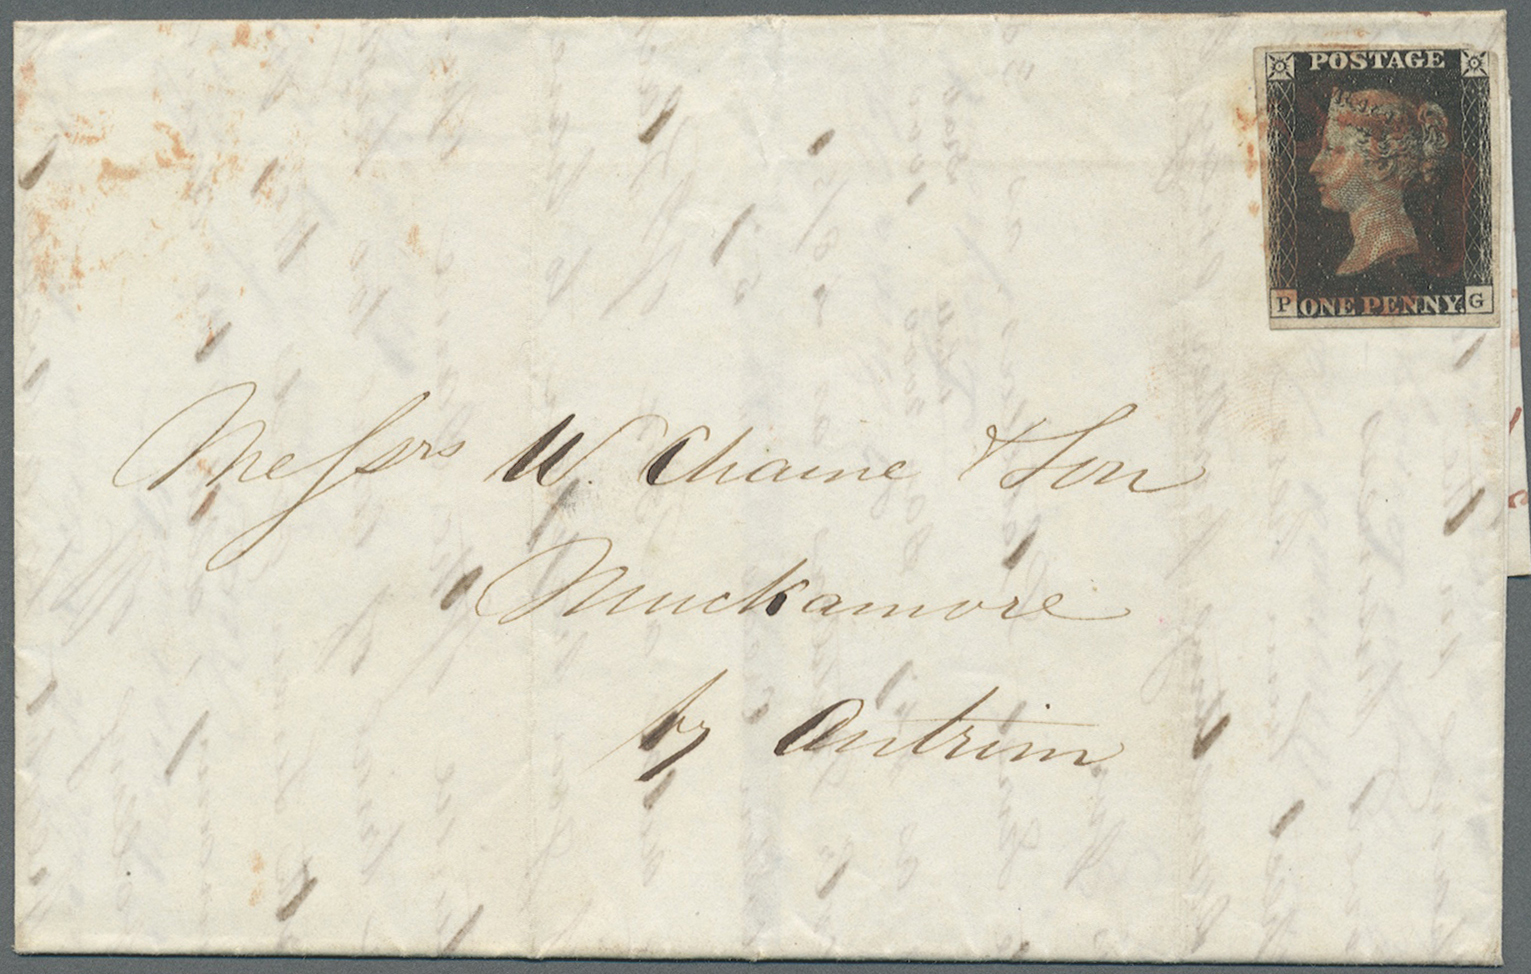 POSTAGE
P ONE PENNY. G
Messrs W. Chaine & Son
Muckamore
by Antrim